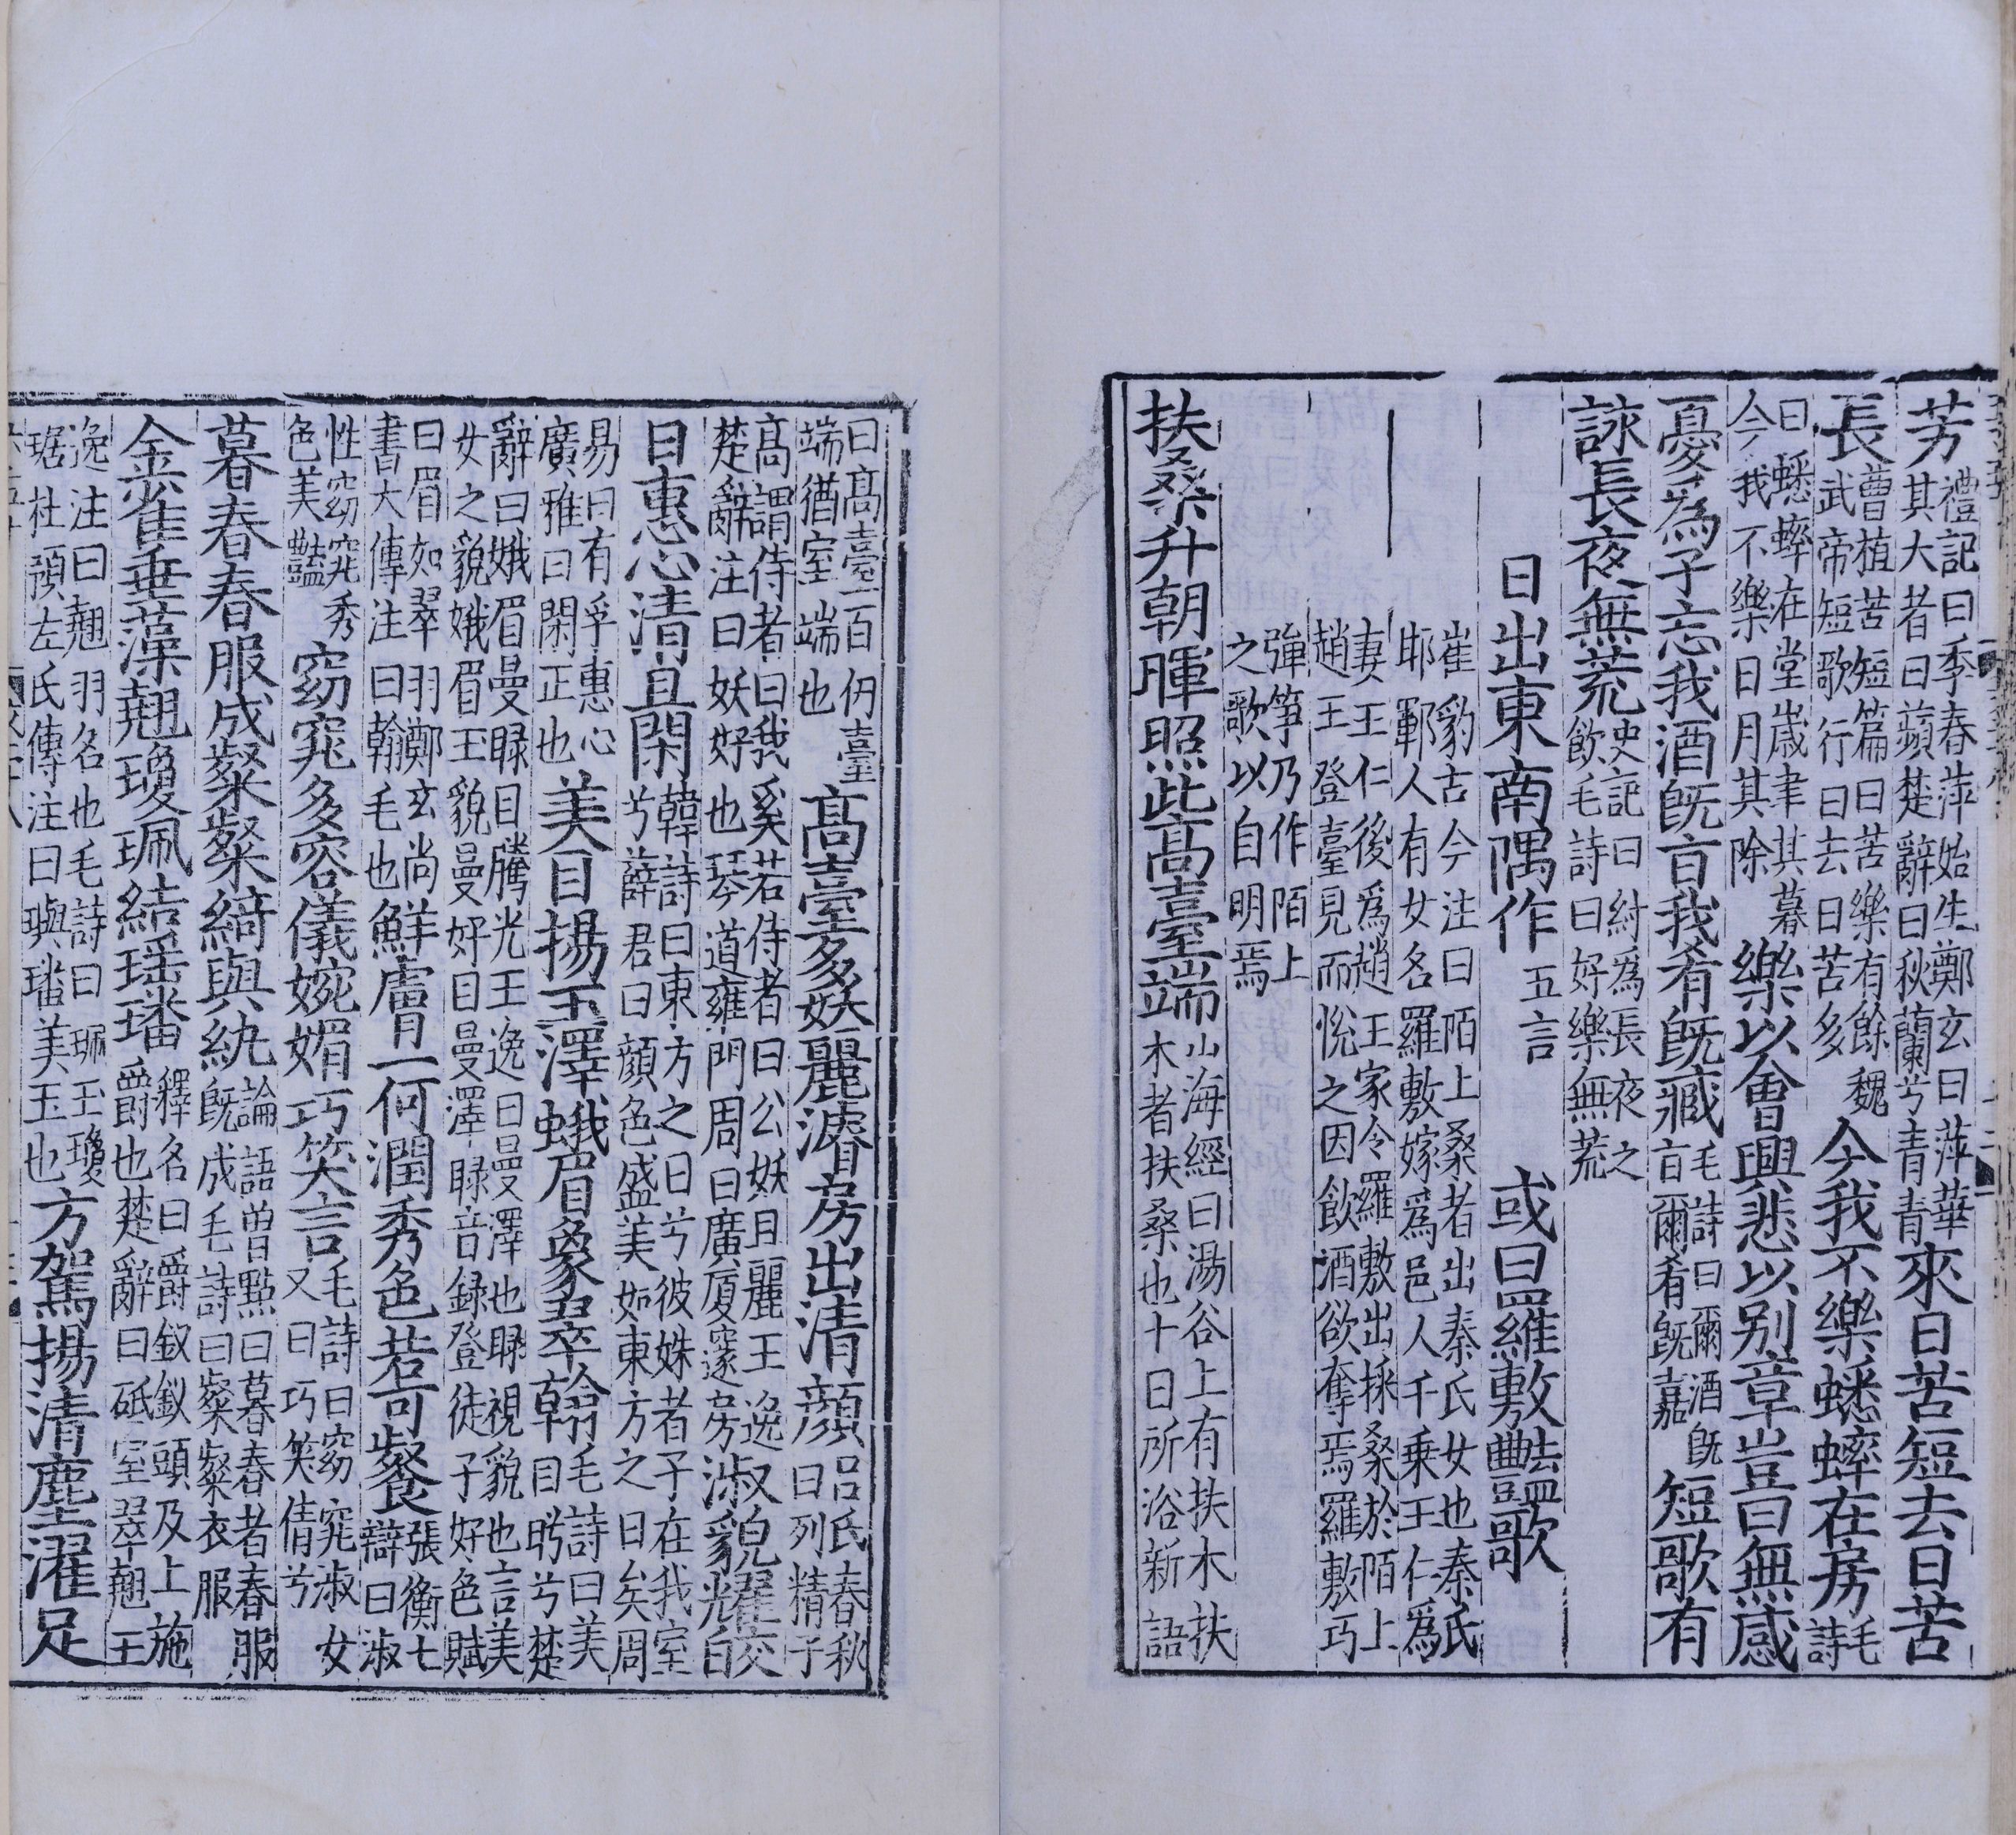 芳禮記曰季春萍始生鄭玄曰萍華
其大者曰蘋楚辭曰秋蘭兮青青來日苦短去日苦
長曹植苦短篇曰苦樂有餘魏
武帝短歌行曰去日苦多今我不樂蟋蟀在房毛
詩
曰蟋蟀在堂歲聿其暮
今我不樂日月其除樂以會興悲以别章豈曰無感
憂為子忘我酒旣旨我肴旣臧毛詩曰爾酒旣
旨爾肴旣嘉短歌有
詠長夜無荒史記曰紂為長夜之
飲毛詩曰好樂無荒
日出東南隅作五言 或曰羅敷豔歌
崔豹古今注曰陌上桑者出秦氏女也秦氏
邯鄲人有女名羅敷嫁爲邑人千乗王仁爲
妻王仁後爲趙王家令羅敷出採桑於陌上
趙王登臺見而悅之因飲酒欲奪焉羅敷巧
彈箏乃作陌上
之歌以自明焉
扶桑升朝暉照此高臺端山海經曰湯谷上有扶木扶
木者扶桑也十日所浴新語
曰高臺百仞臺
端猶室端也高臺多妖麗濬房出清顔呂氏春秋
曰列精子
高謂侍者曰我奚若侍者曰公妖且麗王逸
楚辭注曰妖好也琴道雍門周曰廣厦邃房淑貌耀皎
日惠心清且閑韓詩曰東方之日兮彼姝者子在我室
兮薛君曰顔色盛美如東方之日矣周
易曰有孚惠心
廣雅曰閑正也美目揚玉澤蛾眉象翠翰毛詩曰美
目眄兮楚
辭曰娥眉曼睩目騰光王逸曰曼澤也睩視貌也言美
女之貌娥眉王貌曼好目曼澤睩音録登徒子好色賦
曰眉如翠羽鄭玄尚
書大傳注曰翰毛也鮮膚一何潤秀色若可餐張衡七
辯曰淑
性窈窕秀
色美豔窈窕多容儀婉媚巧笑言毛詩曰窈窕淑女
又曰巧笑倩兮
暮春春服成粲粲綺與紈論語曾點曰暮春者春服
旣成毛詩曰粲粲衣服
金雀垂藻翹瓊珮結瑶璠釋名曰爵釵釵頭及上施
爵也楚辭曰砥室翠翹王
逸注曰翹羽名也毛詩曰珮玉瓊
琚杜預左氏傳注曰璵璠美玉也方駕揚清塵濯足